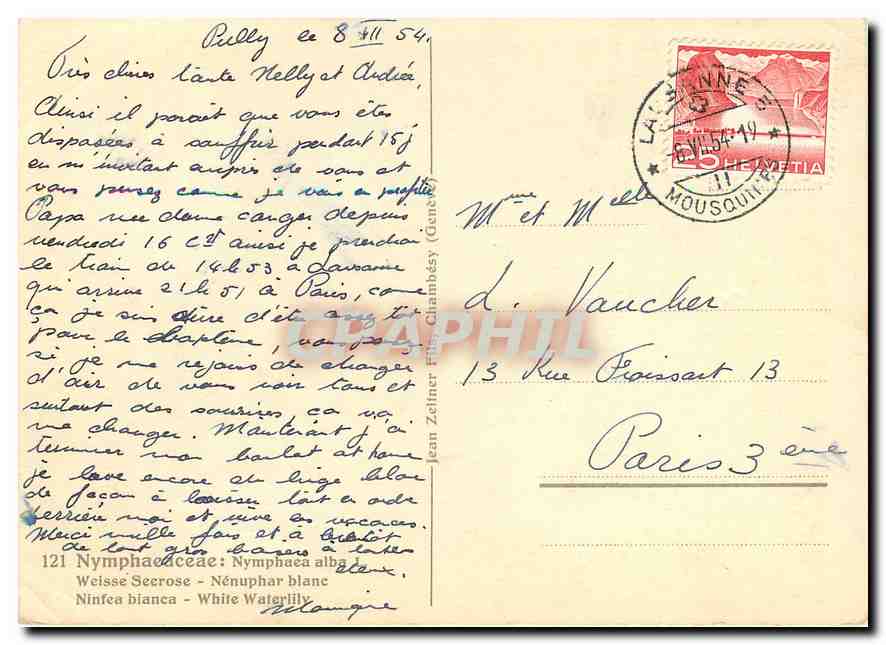 Pully le 8 VII 54.
Très chères tante Nelly et Andrée,
Ainsi il paraît que vous êtes
disposées à souffrir pendant 15 j
en m'invitant auprès de vous et
vous pensez comme je vais en profiter
Papa me donne congé depuis
vendredi 16 ct ainsi je prendrai
le train de 14 h 53 à Lausanne
qui arrive 21 h 51 à Paris, comme
ça je suis sûre d'être assez tôt
pour le baptême, vous pensez
si je me réjouis de changer
d'air de vous voir tous et
surtout des sourires, ça va
me changer. Maintenant j'ai
terminer mon boulot at home
je lave encore du linge blanc
de façon à laisser tout en ordre
derrière moi et vive les vacances.
Merci mille fois et à bientôt
de tout gros baisers à toutes
deux.
121 Nymphaeaceae: Nymphaea alba L
Weisse Seerose - Nénuphar blanc
Ninfea bianca - White Waterlily
Jean Zellner Fils, Chambésy (Genève)
CPAPHIL
LAUSANNE
-6.VII.54-19
II
MOUSQUINES
5 HELVETIA
Mme et Melle
L. Vaucher
13 Rue Froissart 13
Paris 3 ème